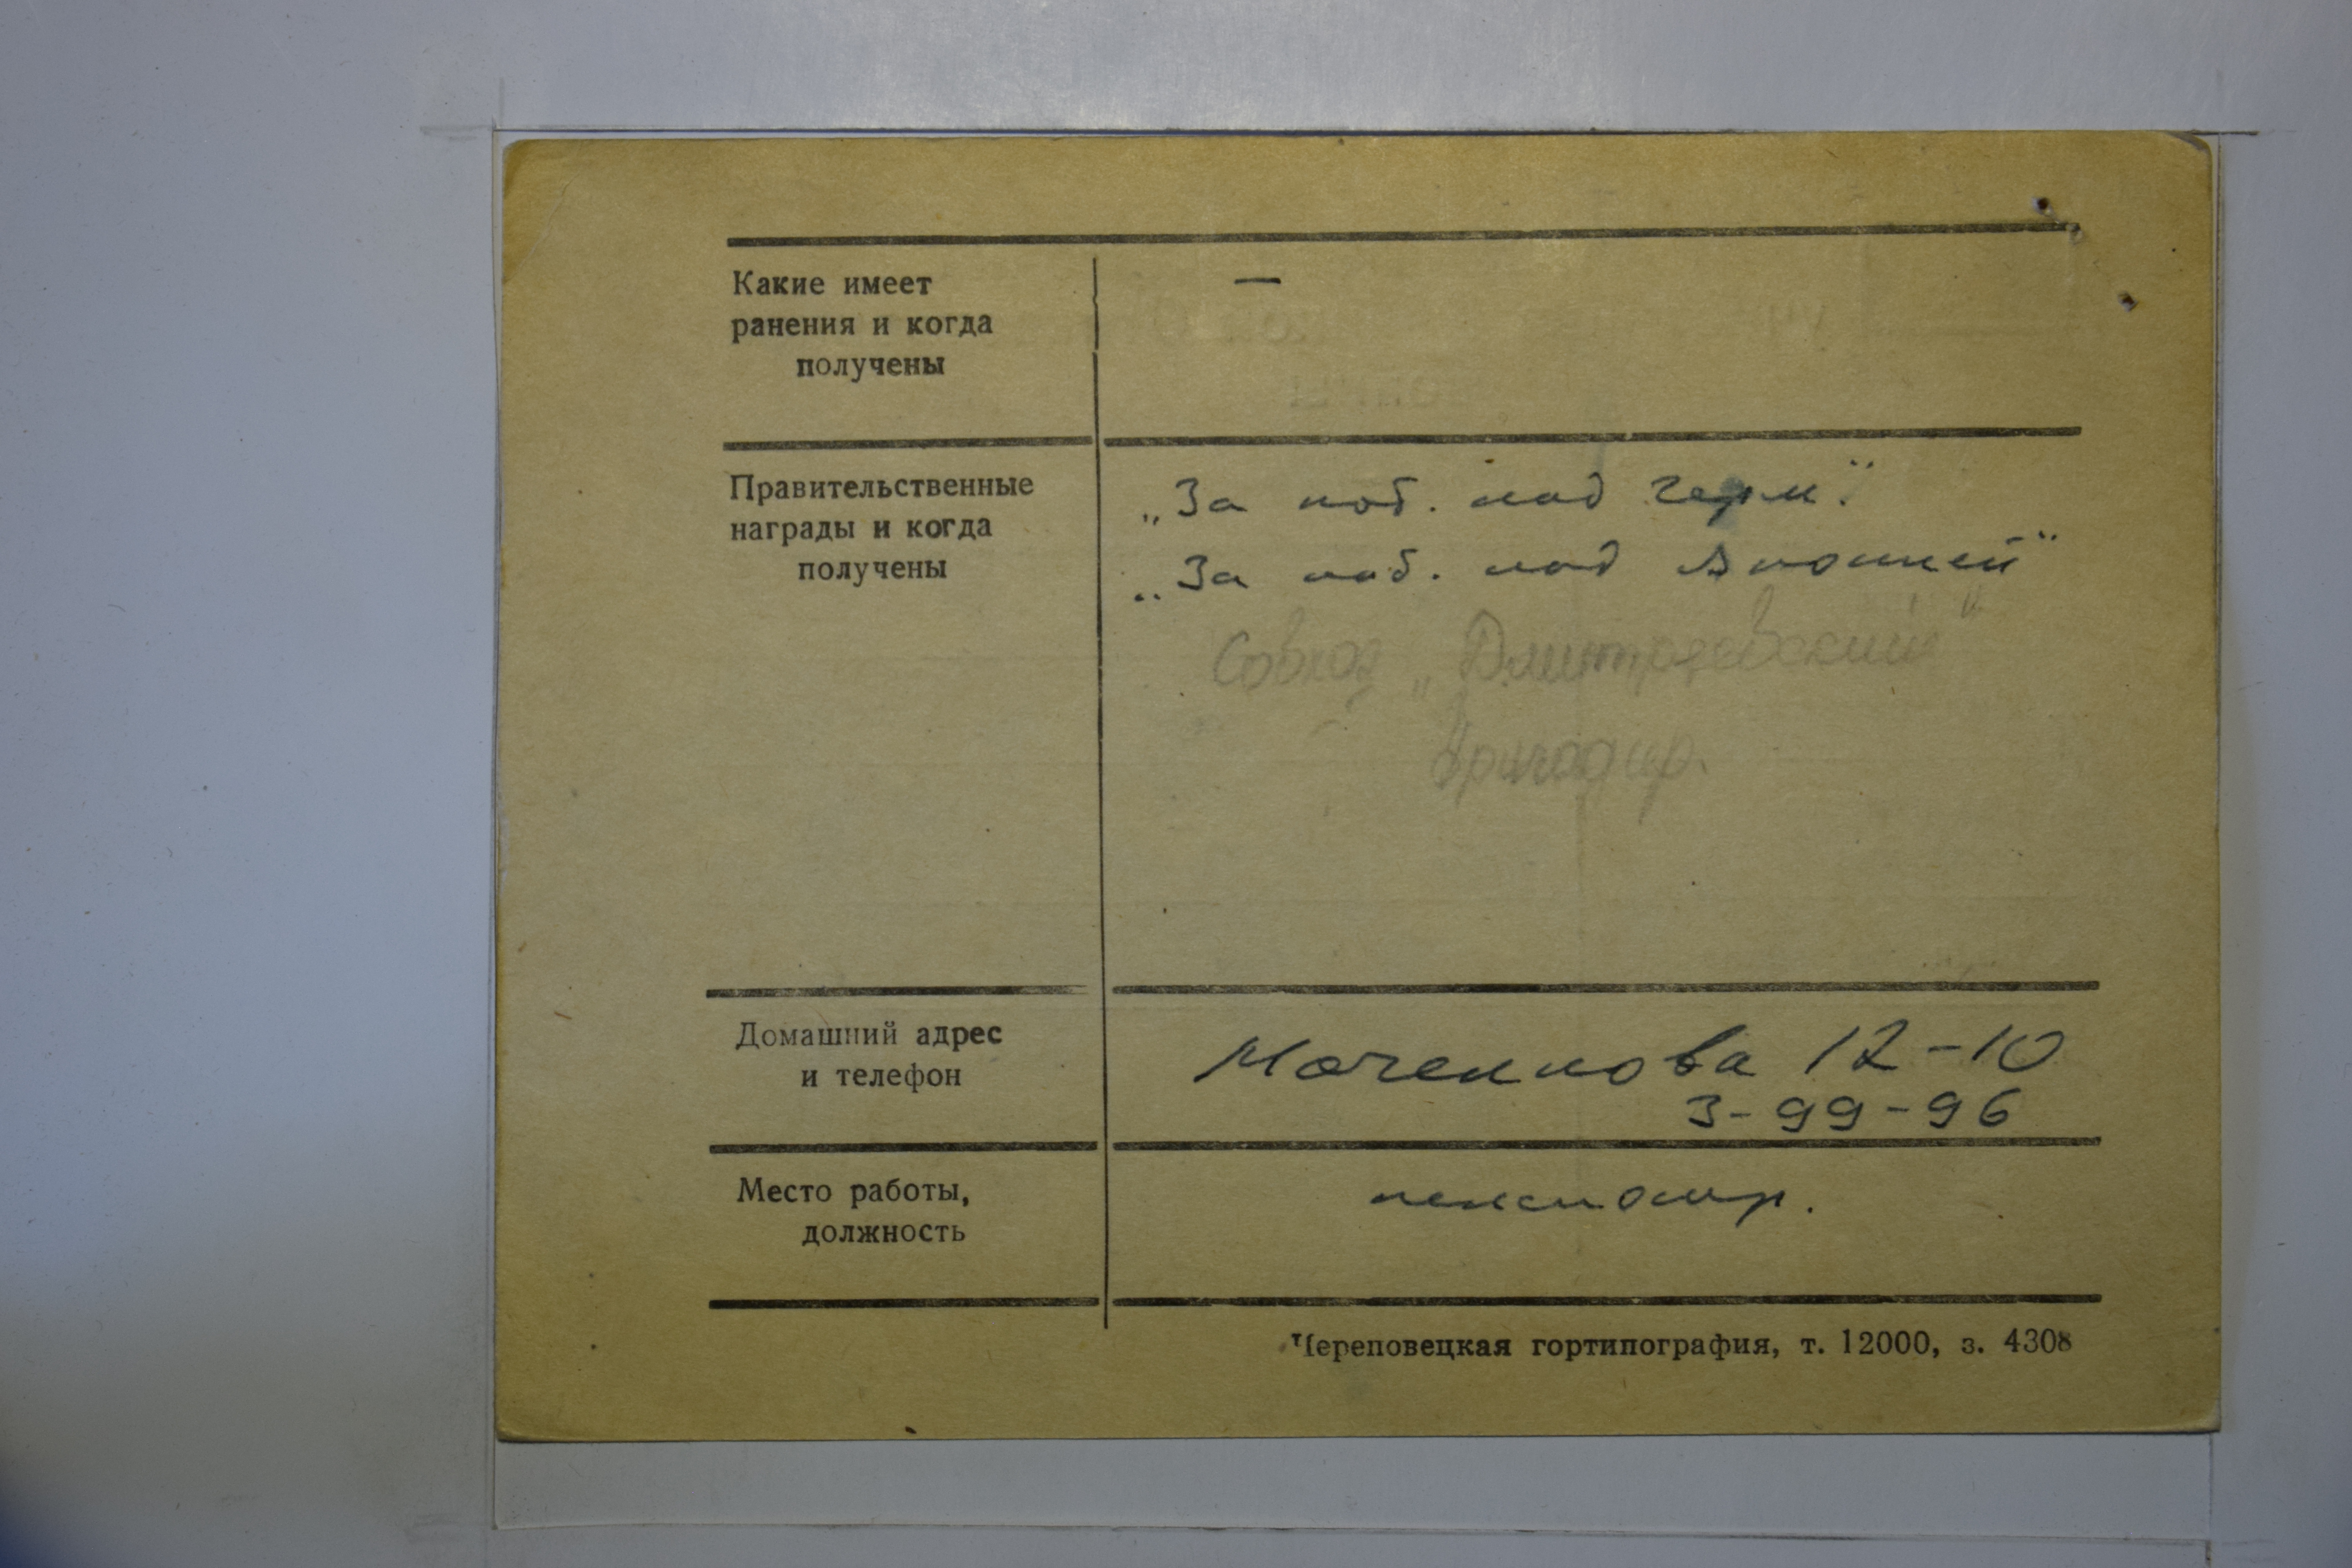 Какие имеет
ранения и когда
получены
—
Правительственные
награды и когда
получены
„За поб. над Герм."
„За поб. над Японией"
Совхоз „Дмитриевский"
бригадир.
Домашний адрес
и телефон
Моченкова 12-10
3-99-96
Место работы,
должность
пенсионр.
Череповецкая гортипография, т. 12000, з. 4308